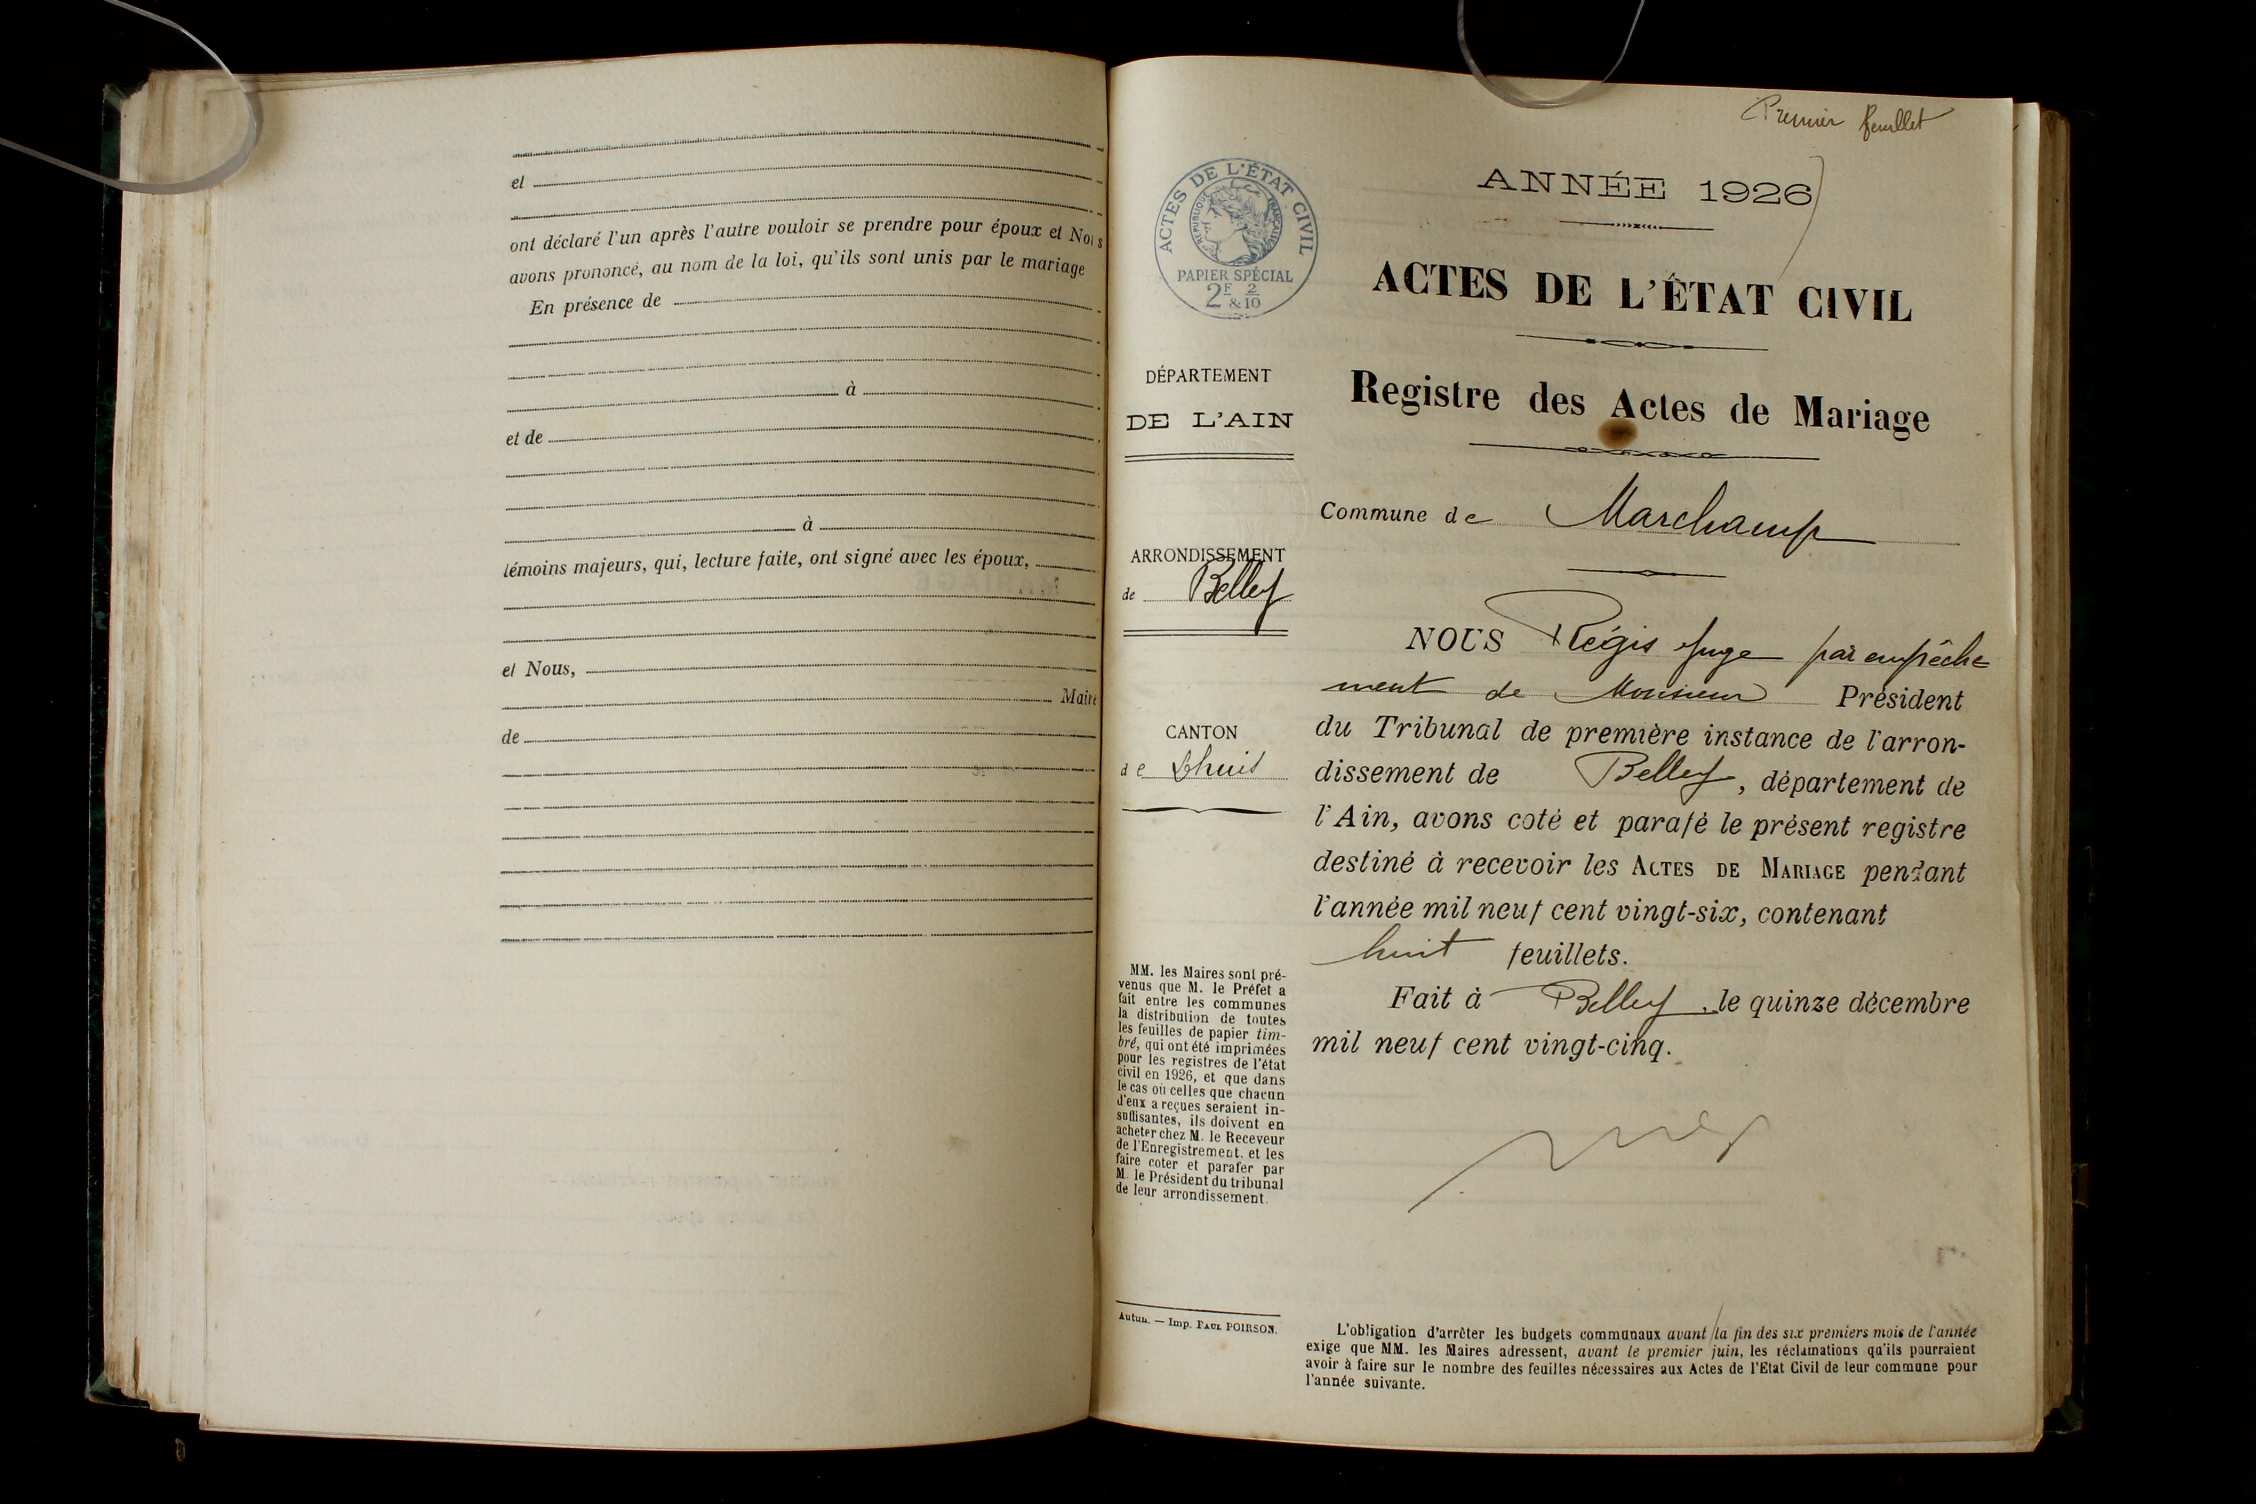 et
ont déclaré l'un après l'autre vouloir se prendre pour époux et Nous
avons prononcé, au nom de la loi, qu'ils sont unis par le mariage
En présence de
à
et de
à
témoins majeurs, qui, lecture faite, ont signé avec les époux,
et Nous,
Maire
de
Premier feuillet
ANNÉE 1926
ACTES DE L'ÉTAT CIVIL
RÉPUBLIQUE FRANÇAISE
PAPIER SPÉCIAL
2F & 2/10
ACTES DE L'ÉTAT CIVIL
Registre des Actes de Mariage
Commune de Marchamp
DÉPARTEMENT
DE L'AIN
ARRONDISSEMENT
de Belley
CANTON
de Lhuis
MM. les Maires sont pré-
venus que M. le Préfet a
fait entre les communes
la distribution de toutes
les feuilles de papier tim-
bré, qui ont été imprimées
pour les registres de l'état
civil en 1926, et que dans
le cas où celles que chacun
d'eux a reçues seraient in-
suffisantes, ils doivent en
acheter chez M. le Receveur
de l'Enregistrement, et les
faire coter et parafer par
M. le Président du tribunal
de leur arrondissement.
Autun. — Imp. PAUL POIRSON.
NOUS Régis Juge par empêche
ment de Monsieur Président
du Tribunal de première instance de l'arron-
dissement de Belley, département de
l'Ain, avons coté et parafé le présent registre
destiné à recevoir les ACTES DE MARIAGE pendant
l'année mil neuf cent vingt-six, contenant
huit feuillets.
Fait à Belley, le quinze décembre
mil neuf cent vingt-cinq.
L'obligation d'arrêter les budgets communaux avant la fin des six premiers mois de l'année
exige que MM. les Maires adressent, avant le premier juin, les réclamations qu'ils pourraient
avoir à faire sur le nombre des feuilles nécessaires aux Actes de l'Etat Civil de leur commune pour
l'année suivante.